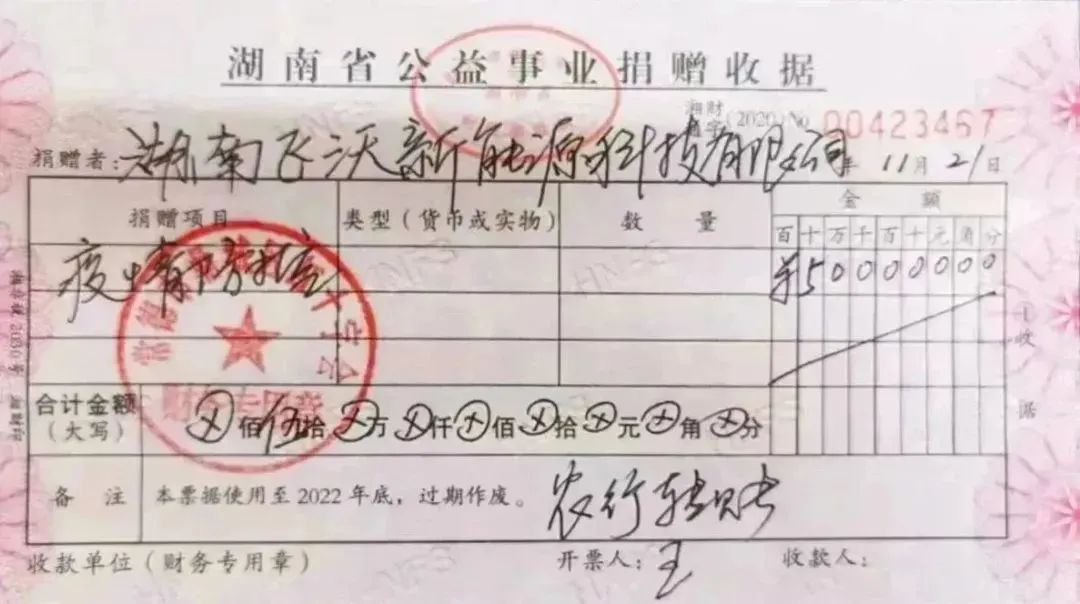 湖南省公益事业捐赠收据
湘财 (2020) No 00423467
捐赠者: 湖南飞沃新能源科技有限公司 年 11月21日
捐赠项目 类型(货币或实物) 数量 金额
百十万千百十元角分
疫情防控 ¥50000000
合计金额(大写) ⊗佰伍拾⊗万⊗仟⊗佰⊗拾⊗元⊗角⊗分
备注 本票据使用至2022年底,过期作废。 农行转账
收款单位(财务专用章) 开票人: 王 收款人:
①收据